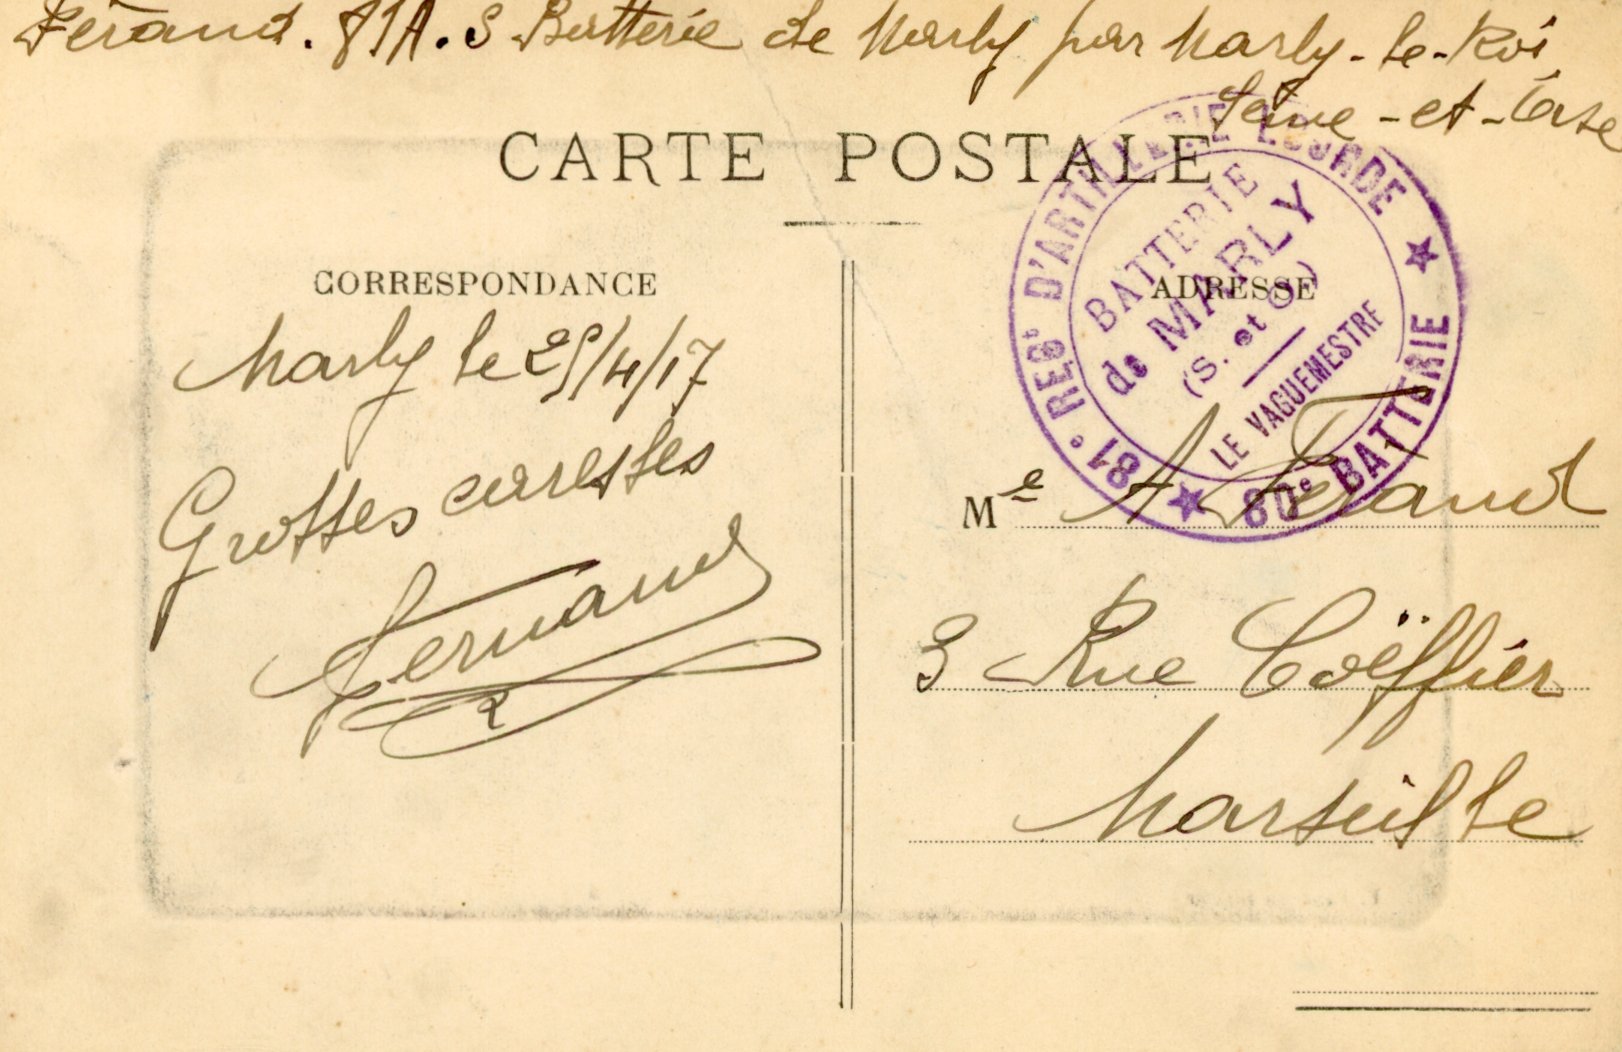 Férand. 81A. S Batterie de Marly par Marly-le-Roi
Seine-et-Oise
CARTE POSTALE
CORRESPONDANCE
ADRESSE
81e REGt D'ARTILLERIE LOURDE
80e BATTERIE
BATTERIE
de MARLY
(S. et O.)
LE VAGUEMESTRE
Marly le 25/4/17
Grosses caresses
Fernand
Me A Férand
3 Rue Coëffier
Marseille